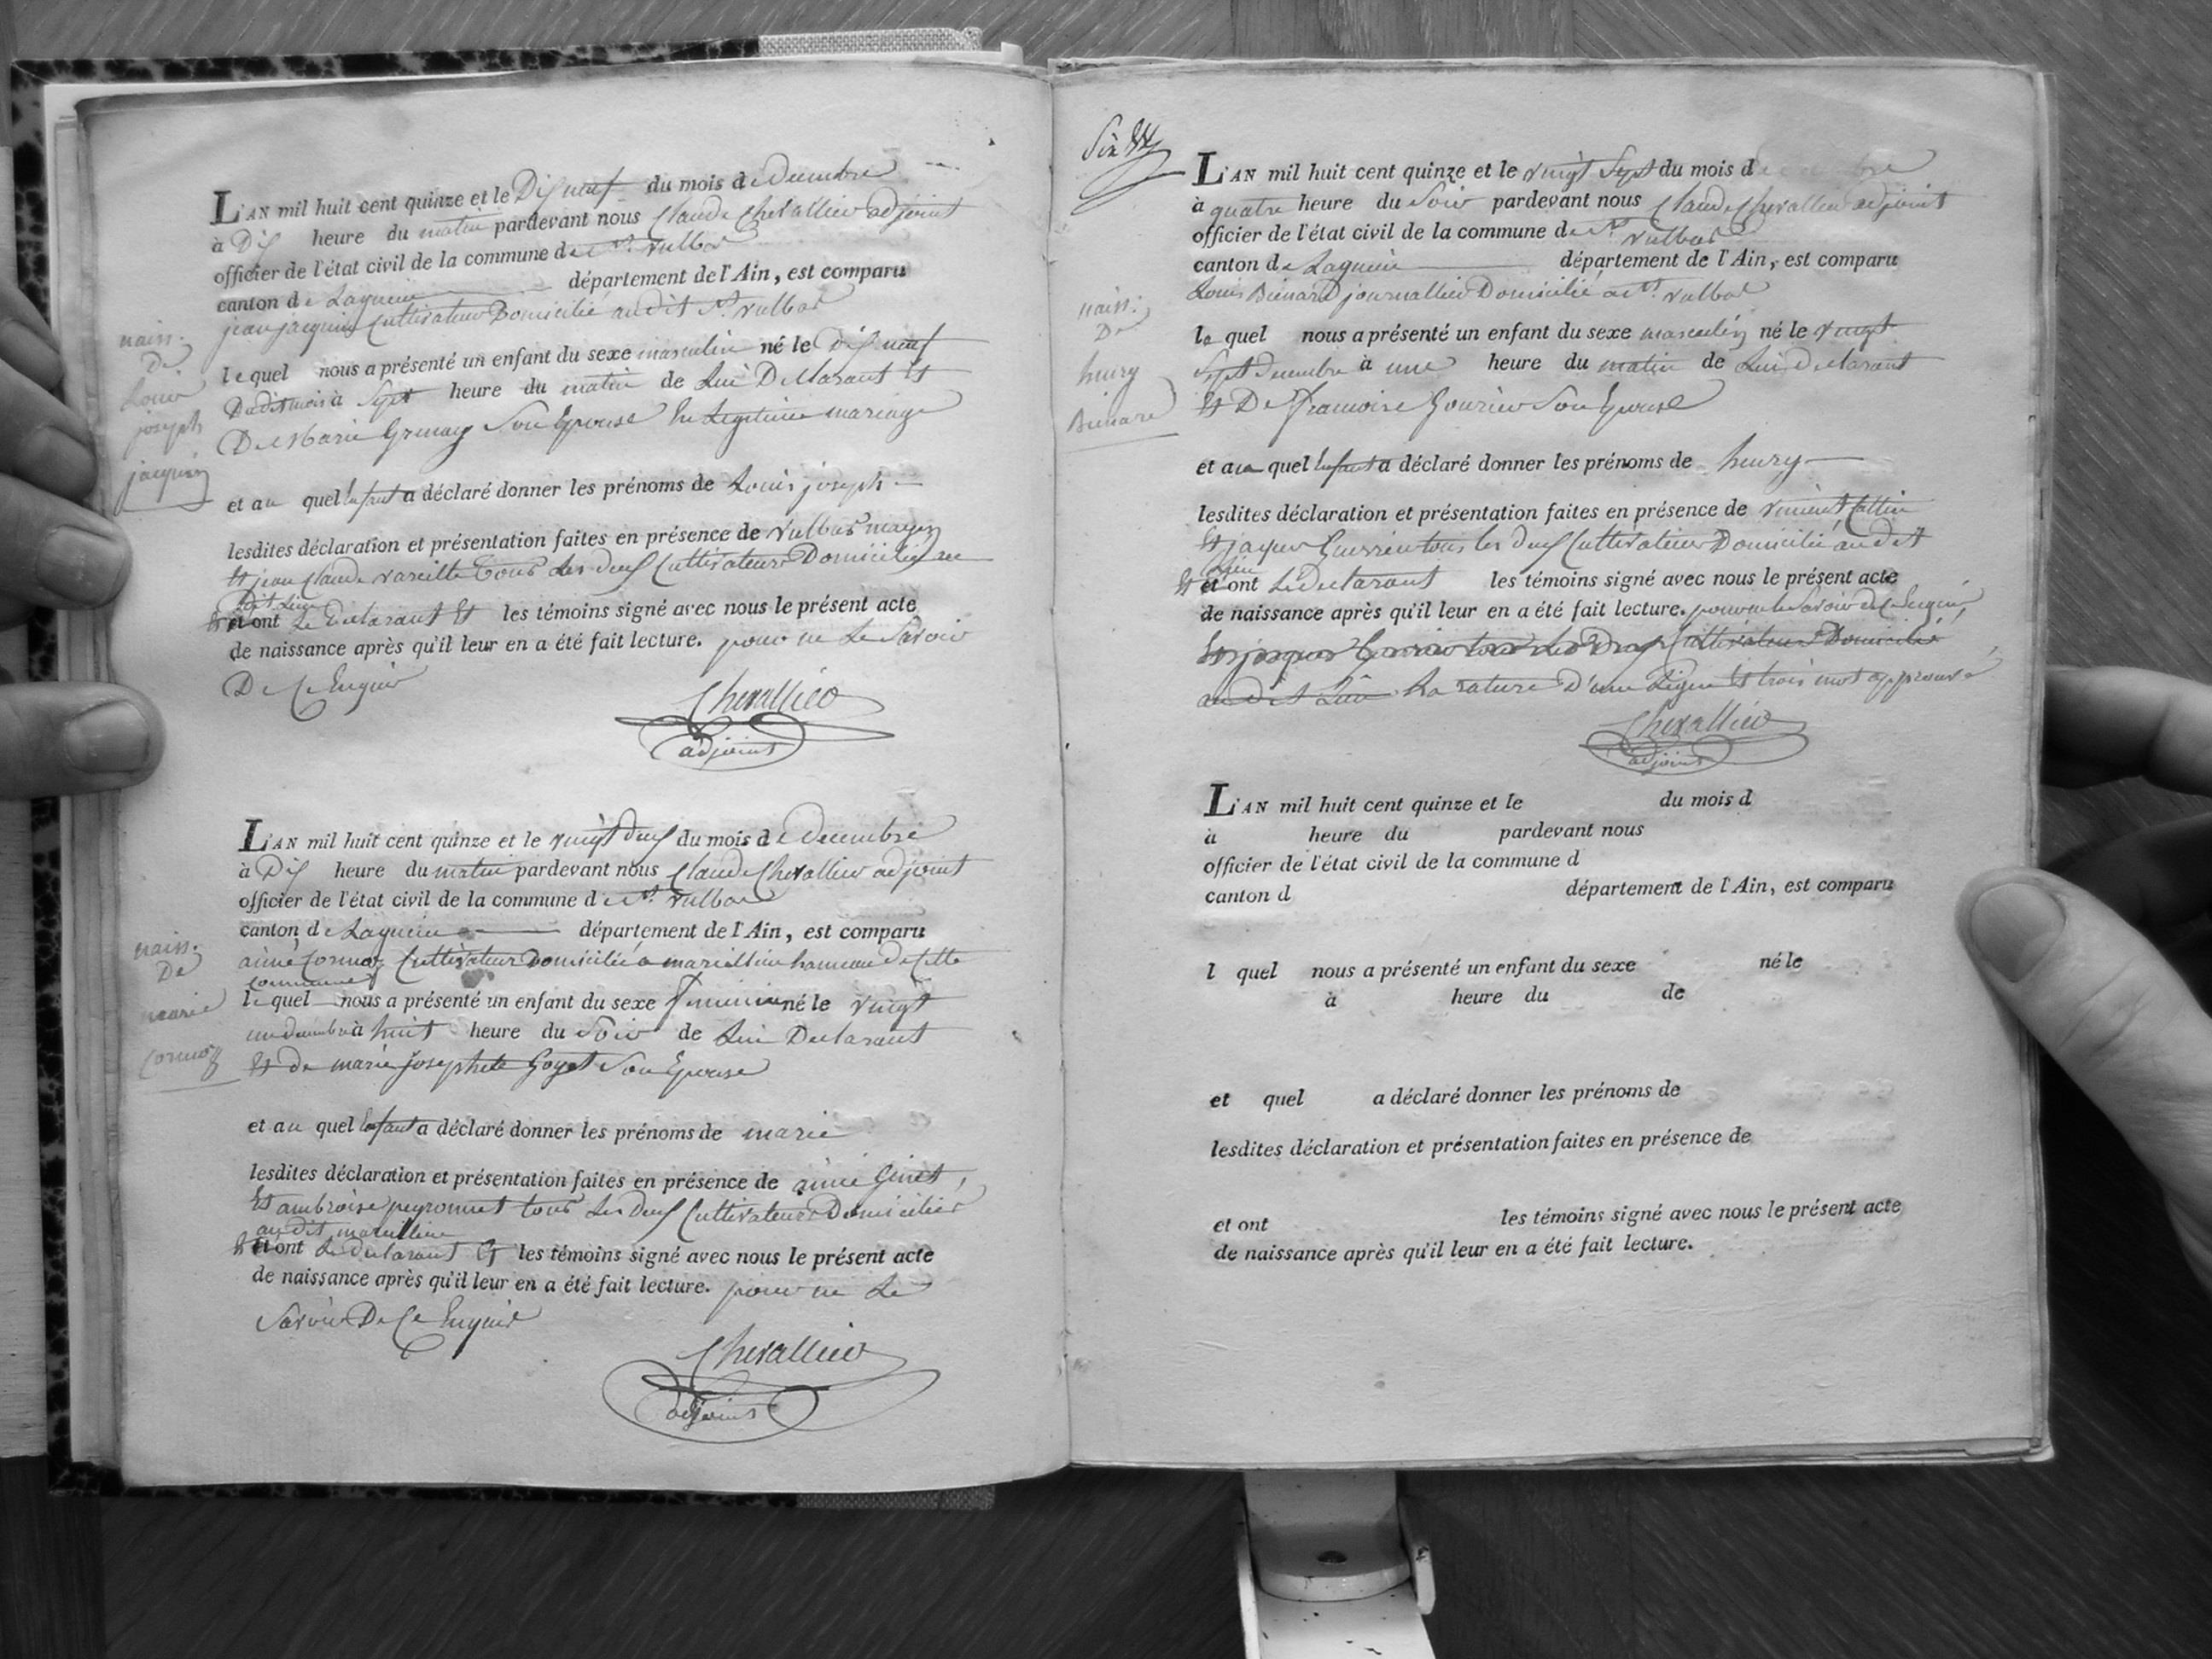 L'AN mil huit cent quinze et le Dix neuf du mois de decembre
à Dix heure du matin pardevant nous Claude Chevallier adjoint
officier de l'état civil de la commune de St. Vulbas
canton de Lagnieu département de l'Ain, est comparu
jean jacquin Cultivateur Domicilié audit St. Vulbas
naiss:
De
Louis
joseph
jacquin
lequel nous a présenté un enfant du sexe masculin né le Dix neuf
Dudit mois à Sept heure du matin de Lui Declarant Et
De Marie Son Epouse En Legitime mariage
et au quel Enfant a déclaré donner les prénoms de Louis joseph
lesdites déclaration et présentation faites en présence de Vulbas
Et jean Claude vareille tous Les deux Cultivateurs Domicilié au
Dit Lieu
et ont Le Declarant Et les témoins signé avec nous le présent acte
de naissance après qu'il leur en a été fait lecture. pour ne Le Savoir
De Ce Enquis
Chevallier
adjoint
L'AN mil huit cent quinze et le vingt deux du mois de decembre
à Dix heure du matin pardevant nous Claude Chevallier adjoint
officier de l'état civil de la commune de St. Vulbas
canton de Lagnieu département de l'Ain, est comparu
aimé Cormoz Cultivateur Domicilié a marcillieu hameau de Cette
commune
naiss:
De
marie
Cormoz
lequel nous a présenté un enfant du sexe feminin né le vingt
un decembre à huit heure du Soir de Lui Declarant
Et de marie josephete Goyet Son Epouse
et au quel Enfant a déclaré donner les prénoms de marie
lesdites déclaration et présentation faites en présence de aimé Ginet,
Et ambroise peyronnet tous Les deux Cultivateurs Domiciliés
au dit marcillieu
et ont Le declarant Et les témoins signé avec nous le présent acte
de naissance après qu'il leur en a été fait lecture. pour ne Le
Savoir De Ce Enquis
Chevallier
adjoint
Six
L'AN mil huit cent quinze et le vingt Sept du mois de decembre
à quatre heure du Soir pardevant nous Claude Chevallier adjoint
officier de l'état civil de la commune de St. Vulbas
canton de Lagnieu département de l'Ain, est comparu
Louis Bienard journallier Domicilié a St. Vulbas
naiss:
De
henry
Bienard
le quel nous a présenté un enfant du sexe masculin né le vingt
Sept decembre à une heure du matin de Lui declarant
Et De francoise Son Epouse
et au quel Enfant a déclaré donner les prénoms de henry
lesdites déclaration et présentation faites en présence de vincent Collin
Et jaques Guerrier tous les deux Cultivateurs Domicilié au dit
Lieu
et ont Le declarant les témoins signé avec nous le présent acte
de naissance après qu'il leur en a été fait lecture. pour ne le Savoir de Ce Enquis,
Et jaques Guerrier tous Les Deux Cultivateurs Domicilié
au dit Lieu La rature D'une Ligne Et trois mot approuvé
Chevallier
adjoint
L'AN mil huit cent quinze et le du mois d
à heure du pardevant nous
officier de l'état civil de la commune d
canton d département de l'Ain, est comparu
l quel nous a présenté un enfant du sexe né le
à heure du de
et quel a déclaré donner les prénoms de
lesdites déclaration et présentation faites en présence de
et ont les témoins signé avec nous le présent acte
de naissance après qu'il leur en a été fait lecture.